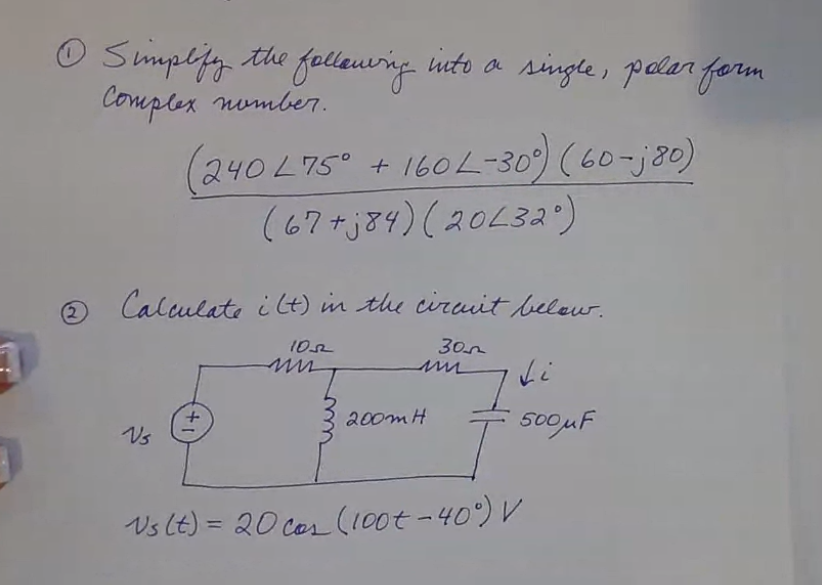 ① Simplify the following into a single, polar form
Complex number.
(240∠75° + 160∠-30°)(60-j80)
(67+j84)(20∠32°)
② Calculate i(t) in the circuit below.
10Ω 30Ω
↓i
Vs + - 200mH 500μF
Vs(t) = 20 cos (100t-40°) V